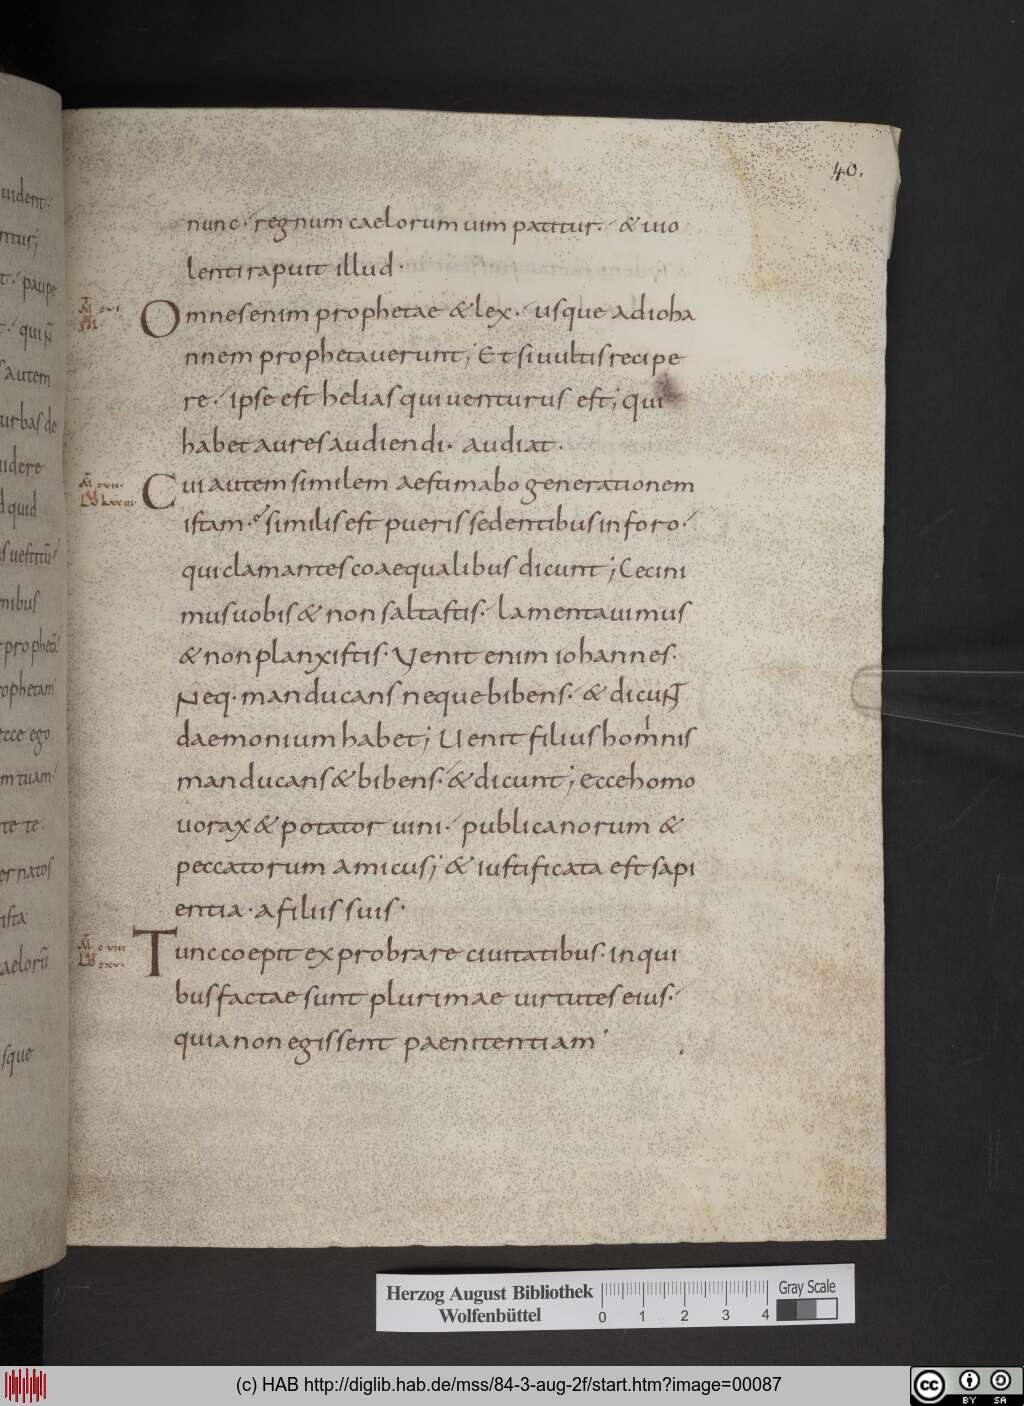 40.
nunc·regnum caelorum uim patitur·& uio
lenti rapuit illud·
Omnes enim prophetae & lex·usque ad ioha
nnem prophetauerunt; Et si uultis recipe
re·ipse est helias qui uenturus est; qui
habet aures audiendi· audiat·
Cui autem similem aestimabo generationem
istam· similis est pueris sedentibus in foro·
qui clamantes coaequalibus dicunt; Cecini
mus uobis & non saltastis· lamentauimus
& non planxistis· Venit enim iohannes·
Neq· manducans neque bibens· & dicuNT
daemonium habet; Uenit filius homnis
manducans & bibens· & dicunt; ecce homo
uorax & potator uini· publicanorum &
peccatorum amicus; & iustificata est sapi
entia· a filiis suis·
Tunc coepit exprobrare ciuitatibus· in qui
bus factae sunt plurimae uirtutes eius·
quia non egissent paenitentiam·
uident·
ntur;
t· paupe
qui
s autem
urbas de
uidere
d quid
is uestitū
mnibus
prophetā
ophetam
ecce ego
m tuam·
te te·
er natos
ista
caelorū
sque
Herzog August Bibliothek
Wolfenbüttel
0 1 2 3 4
Gray Scale
(c) HAB http://diglib.hab.de/mss/84-3-aug-2f/start.htm?image=00087
cc BY SA